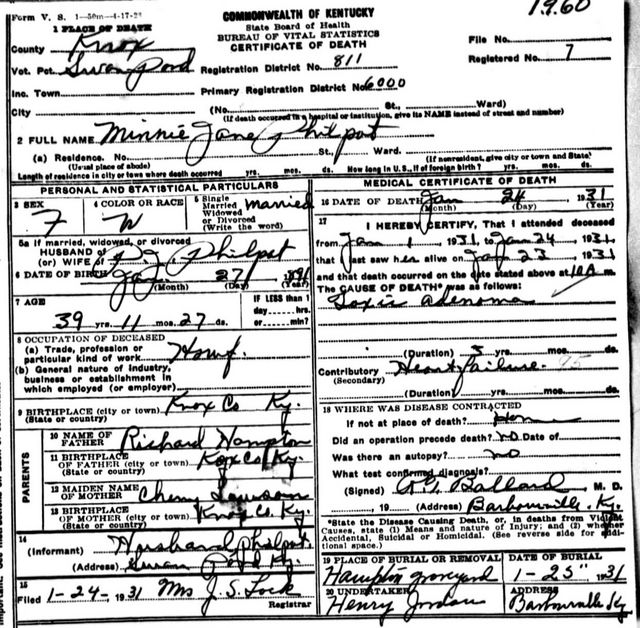 1960
Form V. S. 1-50m-4-17-2
COMMONWEALTH OF KENTUCKY
State Board of Health
BUREAU OF VITAL STATISTICS
CERTIFICATE OF DEATH
1 PLACE OF DEATH
County Knox
File No.
Registered No. 7
Vot. Pct. Swan Pond Registration District No. 811
Inc. Town Primary Registration District No. 6000
City (No. St., Ward)
(If death occurred in a hospital or institution, give its NAME instead of street and number)
2 FULL NAME Minnie Jane Philpot
(a) Residence. No. St., Ward.
(Usual place of abode) (If nonresident, give city or town and State)
Length of residence in city or town where death occurred yrs. mos. ds. How long in U. S., if of foreign birth? yrs. mos. ds.
PERSONAL AND STATISTICAL PARTICULARS
3 SEX F
4 COLOR OR RACE W
5 Single Married Widowed or Divorced (Write the word) married
5a If married, widowed, or divorced
HUSBAND of
(or) WIFE of J. Philpot
6 DATE OF BIRTH 27
(Month) (Day) (Year)
7 AGE
39 yrs. 11 mos. 27 ds.
IF LESS than 1 day----hrs. or----min?
8 OCCUPATION OF DECEASED
(a) Trade, profession or particular kind of work
(b) General nature of industry, business or establishment in which employed (or employer)
9 BIRTHPLACE (city or town) Knox Co Ky.
(State or country)
PARENTS
10 NAME OF FATHER Richard Hampton
11 BIRTHPLACE OF FATHER (city or town) Knox Co Ky.
(State or country)
12 MAIDEN NAME OF MOTHER
13 BIRTHPLACE OF MOTHER (city or town) Knox Co. Ky.
(State or country)
14 (Informant) Husband Philpot
(Address) Swan Pond Ky.
15 Filed 1-24-1931 Mrs J. S. Lock
Registrar
MEDICAL CERTIFICATE OF DEATH
16 DATE OF DEATH Jan 24 1931
(Month) (Day) (Year)
17 I HEREBY CERTIFY, That I attended deceased
from Jan 1 1931, to Jan 24, 1931
that I last saw her alive on Jan 23 1931
and that death occurred on the date stated above at 10 A m.
The CAUSE OF DEATH* was as follows:
Toxic adenoma
(Duration) 3 yrs. mos. ds.
Contributory Heart failure. 95
(Secondary)
(Duration) yrs. mos. ds.
18 WHERE WAS DISEASE CONTRACTED
If not at place of death?
Did an operation precede death? no Date of
Was there an autopsy? no
What test confirmed diagnosis?
(Signed) Ballard M. D.
, 19 (Address) Barbourville, Ky.
*State the Disease Causing Death, or, in deaths from Violent Causes, state (1) Means and nature of Injury; and (2) whether Accidental, Suicidal or Homicidal. (See reverse side for additional space.)
19 PLACE OF BURIAL OR REMOVAL Hampton graveyard
DATE OF BURIAL 1-25" 1931
20 UNDERTAKER Henry Jordan
ADDRESS Barbourville Ky